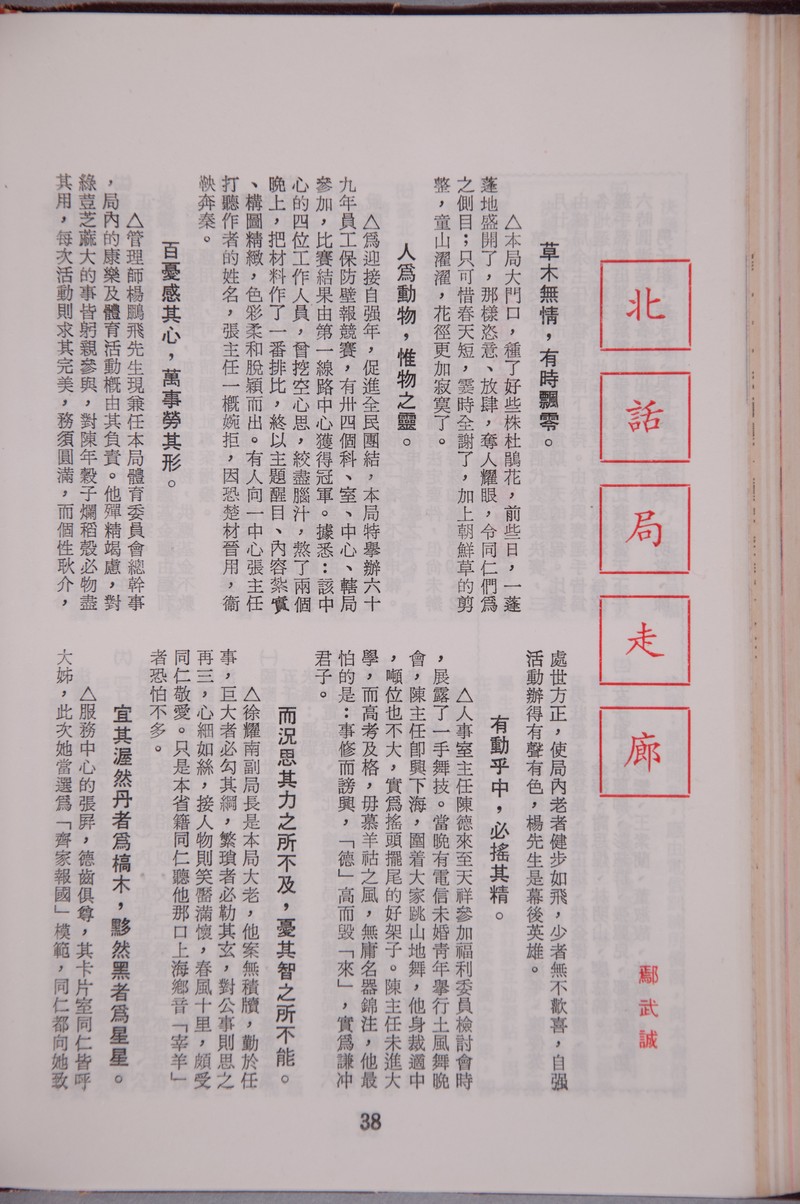 北話局走廊
鄢武誠
草木無情，有時飄零。
△本局大門口，種了好些株杜鵑花，前些日，一蓬
蓬地盛開了，那樣恣意、放肆，奪人耀眼，令同仁們爲
之側目；只可惜春天短，霎時全謝了，加上朝鮮草的剪
整，童山濯濯，花徑更加寂寞了。
人爲動物，惟物之靈。
△爲迎接自强年，促進全民團結，本局特舉辦六十
九年員工保防壁報競賽，有卅四個科、室、中心、轄局
參加，比賽結果由第一線路中心獲得冠軍。據悉：該中
心的四位工作人員，曾挖空心思，絞盡腦汁，熬了兩個
晚上，把材料作了一番排比，終以主題醒目、內容紮實
、構圖精緻，色彩柔和脫穎而出。有人向一中心張主任
打聽作者的姓名，張主任一概婉拒，因恐楚材晉用，衞
鞅奔秦。
百憂感其心，萬事勞其形。
△管理師楊鵬飛先生現兼任本局體育委員會總幹事
，局內的康樂及體育活動概由其負責。他殫精竭慮，對
綠荳芝蔴大的事皆躬親參與，對陳年穀子爛稻殼必物盡
其用，每次活動則求其完美，務須圓滿，而個性耿介，
處世方正，使局內老者健步如飛，少者無不歡喜，自强
活動辦得有聲有色，楊先生是幕後英雄。
有動乎中，必搖其精。
△人事室主任陳德來至天祥參加福利委員檢討會時
，展露了一手舞技。當晚有電信未婚青年舉行土風舞晚
會，陳主任卽興下海，圍着大家跳山地舞，他身裁適中
，噸位也不大，實爲搖頭擺尾的好架子。陳主任未進大
學，而高考及格，毋慕羊祜之風，無庸名器錦注，他最
怕的是：事修而謗興，「德」高而毀「來」，實爲謙冲
君子。
而況思其力之所不及，憂其智之所不能。
△徐耀南副局長是本局大老，他案無積牘，勤於任
事，巨大者必勾其綱，繁瑣者必勒其玄，對公事則思之
再三，心細如絲，接人物則笑靨滿懷，春風十里，頗受
同仁敬愛。只是本省籍同仁聽他那口上海鄉音「宰羊」
者恐怕不多。
宜其渥然丹者爲槁木，黟然黑者爲星星。
△服務中心的張屏，德齒俱尊，其卡片室同仁皆呼
大姊，此次她當選爲「齊家報國」模範，同仁都向她致
38